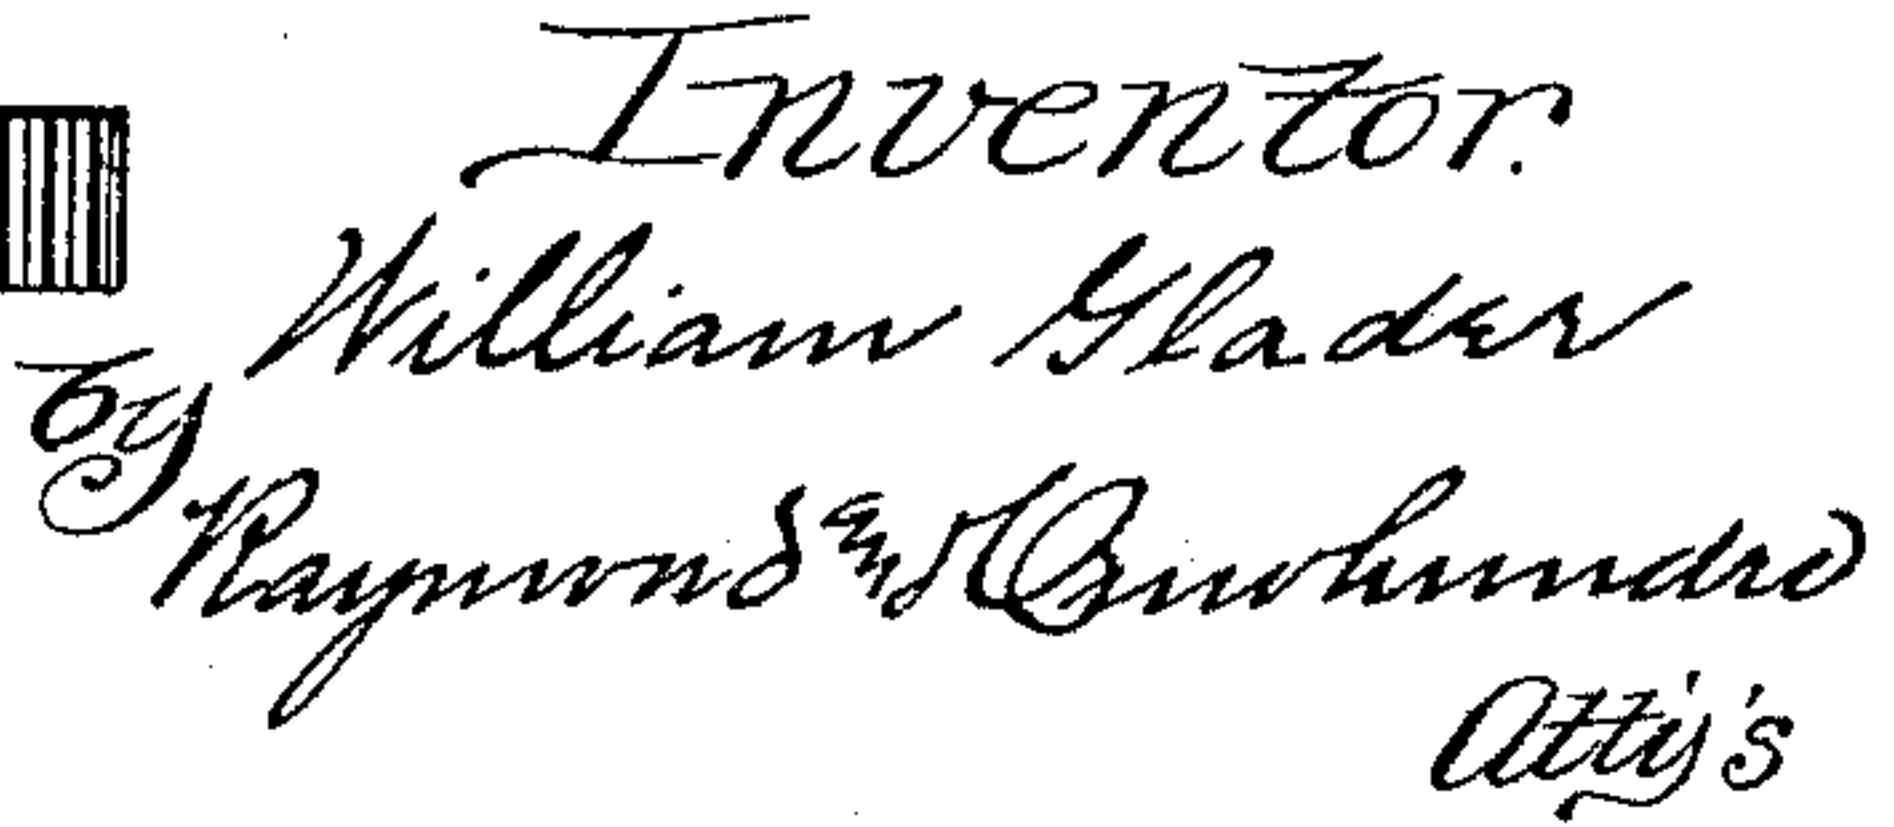 Inventor.
William Glader
by
Raymond and Omohundro
Atty's